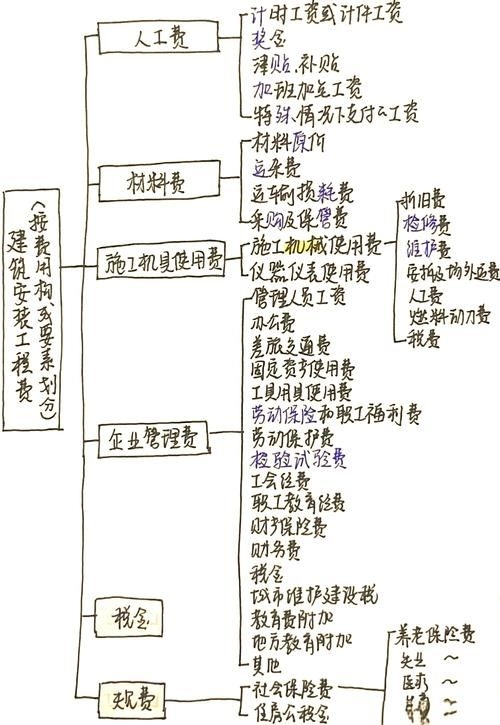 建筑安装工程费
(按费用构成要素划分)
人工费
计时工资或计件工资
奖金
津贴、补贴
加班加点工资
特殊情况下支付工资
材料费
材料原价
运杂费
运输损耗费
采购及保管费
施工机具使用费
施工机械使用费
折旧费
检修费
维护费
安拆及场外运费
人工费
燃料动力费
税费
仪器仪表使用费
企业管理费
管理人员工资
办公费
差旅交通费
固定资产使用费
工具用具使用费
劳动保险和职工福利费
劳动保护费
检验试验费
工会经费
职工教育经费
财产保险费
财务费
税金
城市维护建设税
教育费附加
地方教育附加
其他
税金
规费
社会保险费
养老保险费
失业 ~
医疗 ~
~
住房公积金